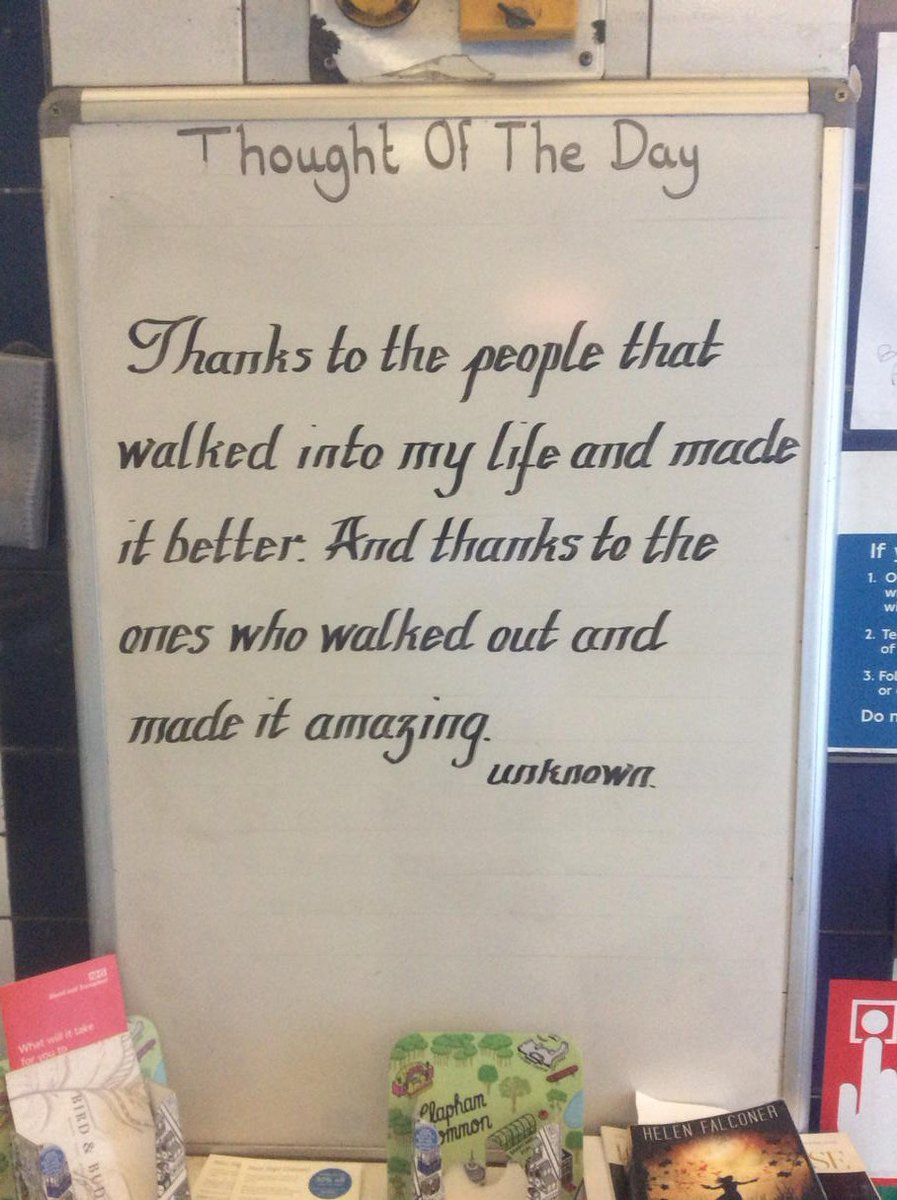 Thought Of The Day
Thanks to the people that
walked into my life and made
it better. And thanks to the
ones who walked out and
made it amazing.
unknown.
If
1. O
2. Te
of
3. Fol
or
Do n
NHS
Blood and Transplant
What will it take
for you to
BIRD & B
Clapham
Common
HELEN FALCONER
SE